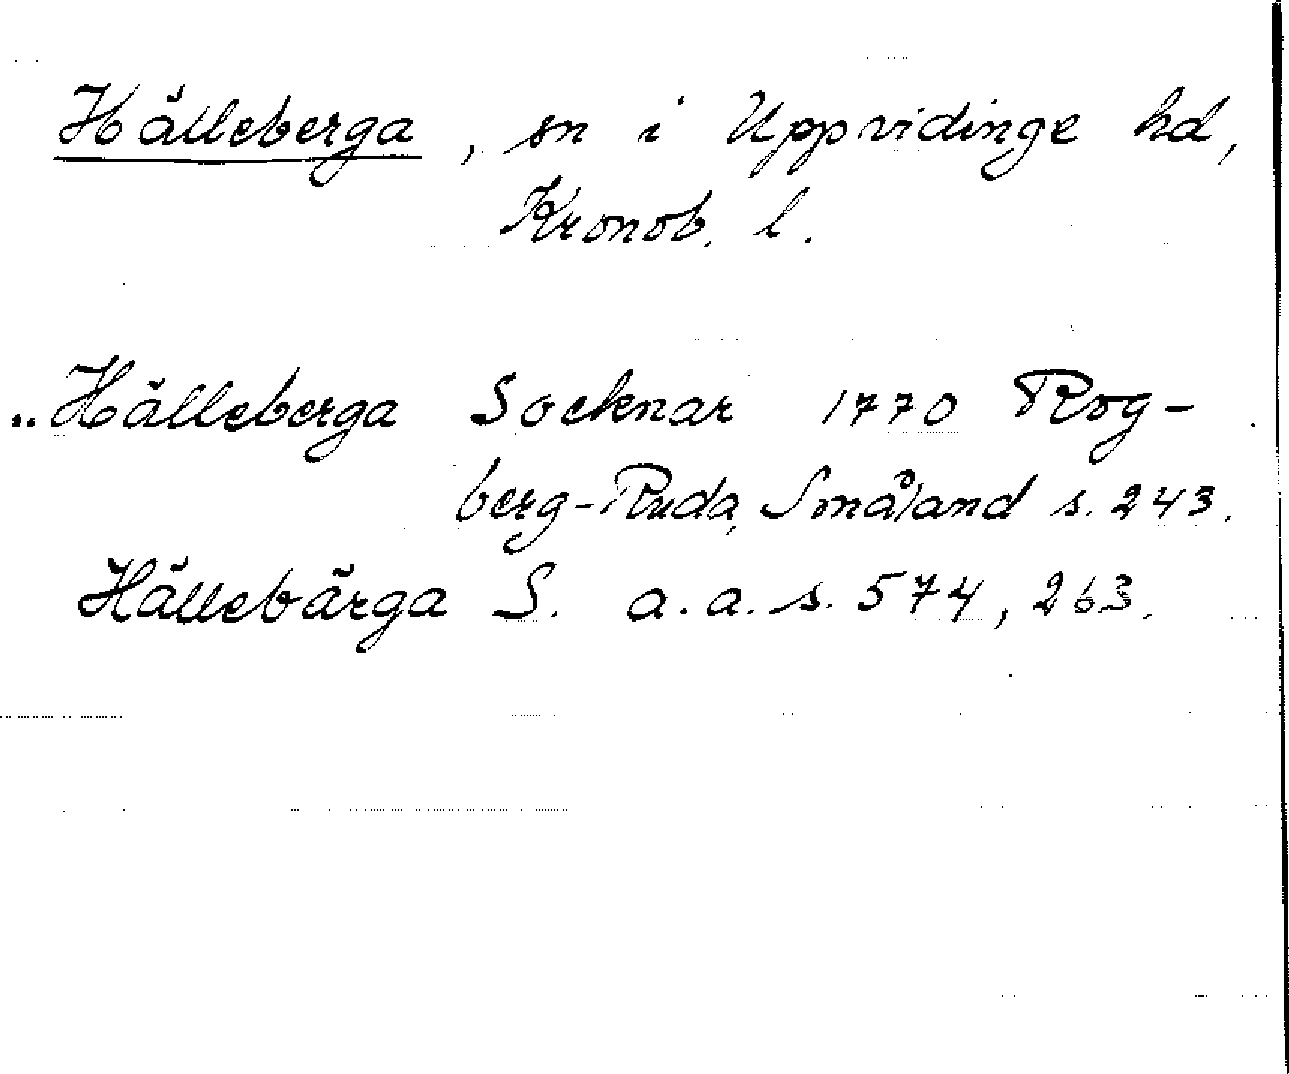 Hälleberga, sn i Uppvidinge hd,
Kronob. l.
.. Hälleberga Socknar 1770 Rog-
berg-Ruda, Småland s. 243.
Hällebärga S. a.a. s. 574, 263.